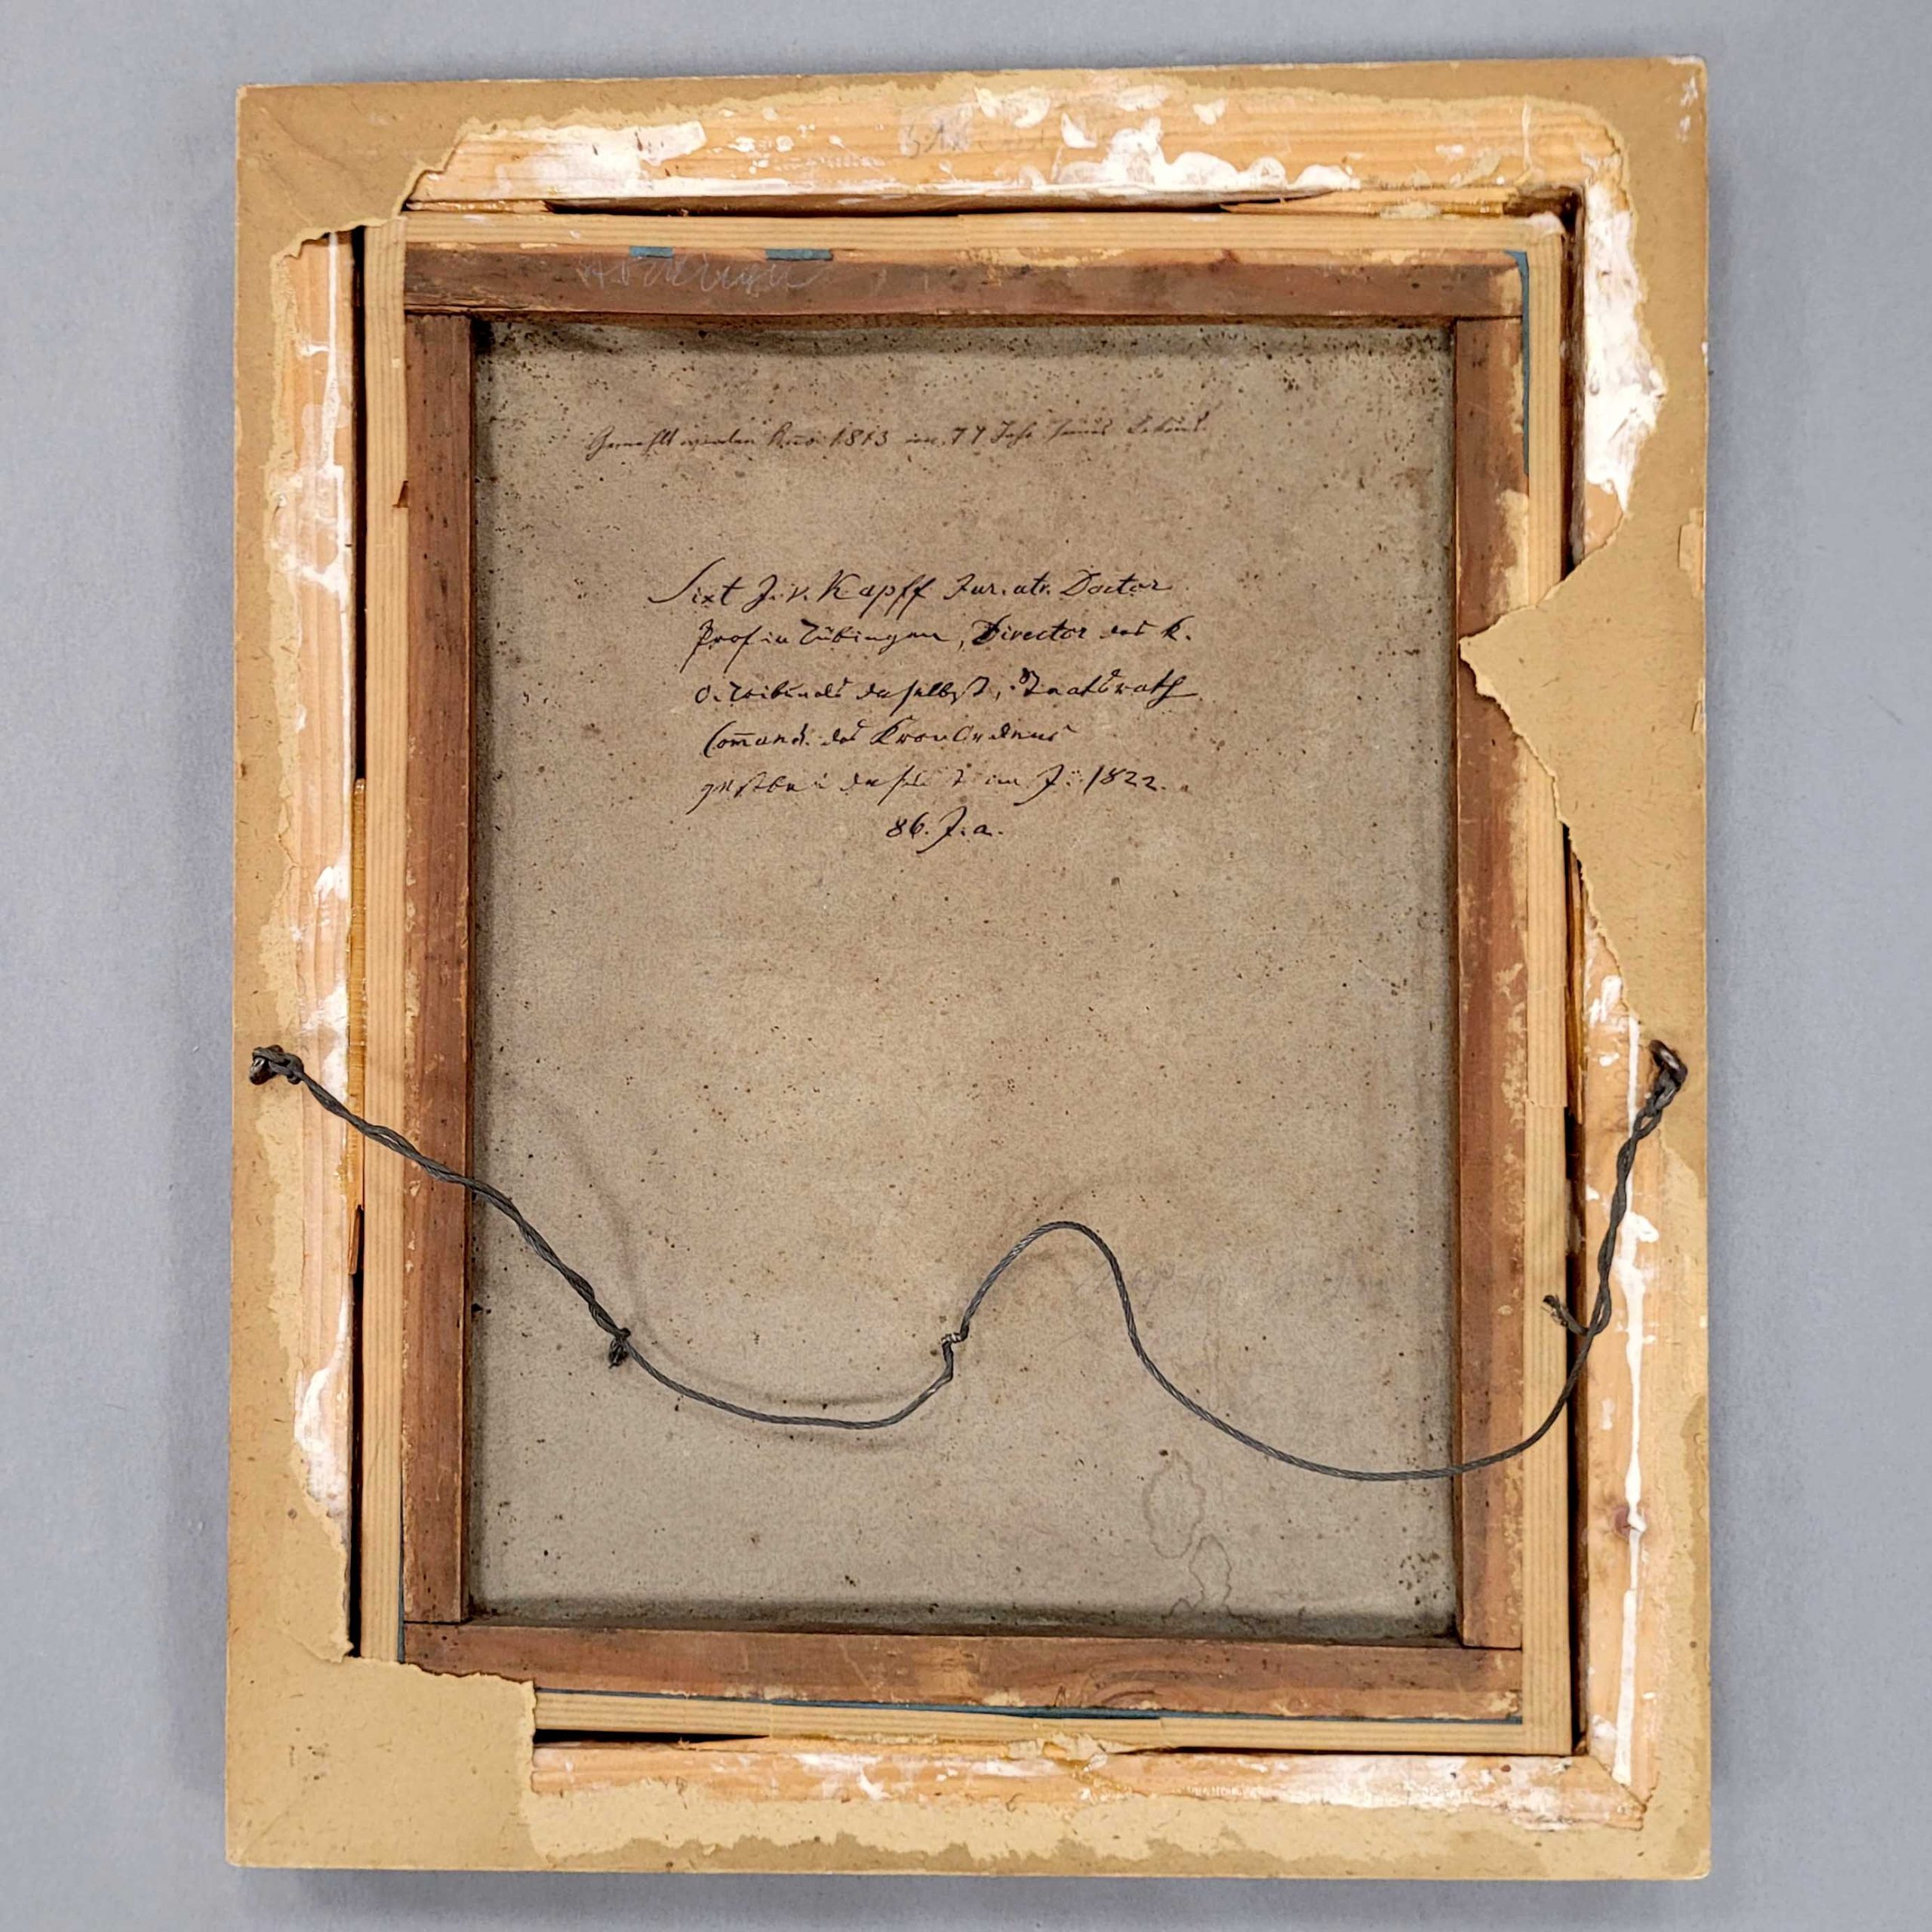 Gemahlt worden Año 1813 im 77 Jahr seines Lebens.
Sixt J. v. Kapff Jur. utr. Doctor
Prof in Tübingen, Director des K.
O. Tribunals daselbst, Staatsrath
Com̄and. des KronOrdens
gestorben daselbst im J: 1822.
86. J. a.